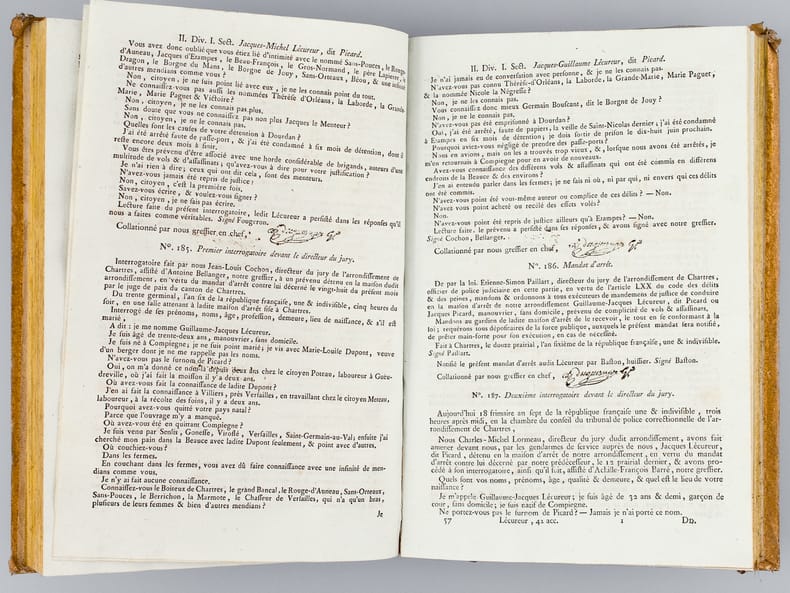 II. Div. I. Sect. Jacques-Michel Lécureur, dit Picard.
Vous avez donc oublié que vous étiez lié d'intimité avec le nommé Sans-Pouces, le Rouge-
d'Auneau, Jacques d'Etampes, le Beau-François, le Gros-Normand, le père Lapierre, le
Dragon, le Borgne du Mans, le Borgne de Jouy, Sans-Orteaux, Béou, & une infinité
d'autres mendians comme vous ?
Non, citoyen, je ne suis point lié avec eux, je ne les connois point du tout.
Ne connoissez-vous pas aussi les nommées Thérèse d'Orléans, la Laborde, la Grande-
Marie, Marie Paguet & Victoire ?
Non, citoyen, je ne les connois pas.
Sans doute que vous ne connoissez pas non plus Jacques le Menteur ?
Non, citoyen, je ne le connois pas.
Quelles sont les causes de votre détention à Dourdan ?
J'ai été arrêté faute de passe-ports, & j'ai été condamné à six mois de détention, dont il
reste encore deux mois à finir.
Vous êtes prévenu d'être associé avec une horde considérable de brigands, auteurs d'une
multitude de vols & d'assassinats, qu'avez-vous à dire pour votre justification ?
Je n'ai rien à dire; ceux qui ont dit cela, sont des menteurs.
N'avez-vous jamais été repris de justice ?
Non, citoyen, c'est la première fois.
Savez-vous écrire, & voulez-vous signer ?
Non, citoyen, je ne sais pas écrire.
Lecture faite du présent interrogatoire, ledit Lécureur a persisté dans les réponses qu'il
nous a faites comme véritables. Signé Fougeron.
Collationné par nous greffier en chef,
N°. 185. Premier interrogatoire devant le directeur du jury.
Interrogatoire fait par nous Jean-Louis Cochon, directeur du jury de l'arrondissement de
Chartres, assisté d'Antoine Bellanger, notre greffier, à un prévenu détenu en la maison dudit
arrondissement, en vertu du mandat d'arrêt contre lui décerné le vingt-huit du présent mois
par le juge de paix du canton de Chartres.
Du trente germinal, l'an six de la république française, une & indivisible, cinq heures du
soir, en une salle attenant à ladite maison d'arrêt sise à Chartres.
Interrogé de ses prénoms, noms, âge, profession, demeure, lieu de naissance, & s'il est
marié,
A dit : je me nomme Guillaume-Jacques Lécureur.
Je suis âgé de trente-deux ans, manouvrier, sans domicile.
Je suis né à Compiegne; je ne suis point marié; je vis avec Marie-Louise Dupont, veuve
d'un berger dont je ne me rappelle pas les noms.
N'avez-vous pas le surnom de Picard ?
Oui, on m'a donné ce nom-là depuis deux ans chez le citoyen Poteau, laboureur à Gué-
dreville, où j'ai fait la moisson il y a deux ans.
Où avez-vous fait la connaissance de ladite Dupont ?
J'en ai fait la connaissance à Villiers, près Versailles, en travaillant chez le citoyen Moteau,
laboureur, à la récolte des foins, il y a deux ans.
Pourquoi avez-vous quitté votre pays natal ?
Parce que l'ouvrage m'y a manqué.
Où avez-vous été en quittant Compiegne ?
Je suis venu par Senlis, Gonesse, Viroflé, Versailles, Saint-Germain-au-Val; ensuite j'ai
cherché mon pain dans la Beauce avec ladite Dupont seulement, & point avec d'autres.
Où couchiez-vous ?
Dans les fermes.
En couchant dans les fermes, vous avez dû faire connaissance avec une infinité de men-
dians comme vous.
Je n'y ai fait aucune connaissance.
Connaissez-vous le Boiteux de Chartres, le grand Bancal, le Rouge-d'Auneau, Sans-Orteaux,
Sans-Pouces, le Berrichon, la Marmote, le Chasseur de Versailles, qui n'a qu'un bras,
plusieurs de leurs femmes & bien d'autres mendians ?
Je
II. Div. I. Sect. Jacques-Guillaume Lécureur, dit Picard.
Je n'ai jamais eu de conversation avec personne, & je ne les connais pas.
N'avez-vous pas connu Thérèse-d'Orléans, la Laborde, la Grande-Marie, Marie Paguet,
& la nommée Nicole la Négresse ?
Non, je ne les connais pas.
Vous connaissez donc mieux Germain Bouscant, dit le Borgne de Jouy ?
Non, je ne le connais pas.
N'avez-vous pas été emprisonné à Dourdan ?
Oui, j'ai été arrêté, faute de papiers, la veille de Saint-Nicolas dernier; j'ai été condamné
à Etampes en six mois de détention; je dois sortir de prison le dix-huit juin prochain.
Pourquoi aviez-vous négligé de prendre des passe-ports ?
Nous en avions, mais on les a trouvés trop vieux, & lorsque nous avons été arrêtés, je
m'en retournais à Compiegne pour en avoir de nouveaux.
Avez-vous connaissance des différens vols & assassinats qui ont été commis en différens
endroits de la Beauce & des environs ?
J'en ai entendu parler dans les fermes; je ne sais ni où, ni par qui, ni envers qui ces délits
ont été commis.
N'avez-vous point été vous-même auteur ou complice de ces délits ? — Non.
N'avez-vous point acheté ou recélé des effets volés ?
Non.
N'avez-vous point été repris de justice ailleurs qu'à Etampes ? — Non.
Lecture faite, le prévenu a persisté dans ses réponses, & avons signé avec notre greffier.
Signé Cochon, Bellanger.
Collationné par nous greffier en chef,
N°. 186. Mandat d'arrêt.
De par la loi. Etienne-Simon Paillart, directeur du jury de l'arrondissement de Chartres,
officier de police judiciaire en cette partie, en vertu de l'article LXX du code des délits
& des peines, mandons & ordonnons à tous exécuteurs de mandemens de justice de conduire
en la maison d'arrêt de notre arrondissement Guillaume-Jacques Lécureur, dit Picard ou
Jacques Picard, manouvrier, sans domicile, prévenu de complicité de vols & assassinats.
Mandons au gardien de ladite maison d'arrêt de le recevoir, le tout en se conformant à la
loi; requérons tous dépositaires de la force publique, auxquels le présent mandat sera notifié,
de prêter main-forte pour son exécution, en cas de nécessité.
Fait à Chartres, le douze prairial, l'an sixième de la république française, une & indivisible.
Signé Paillart.
Notifié le présent mandat d'arrêt audit Lécureur par Baston, huissier. Signé Baston.
Collationné par nous greffier en chef,
N°. 187. Deuxième interrogatoire devant le directeur du jury.
Aujourd'hui 18 frimaire an sept de la république française une & indivisible, trois
heures après midi, en la chambre du conseil du tribunal de police correctionnelle de l'ar-
rondissement de Chartres,
Nous Charles-Michel Lormeau, directeur du jury dudit arrondissement, avons fait
amener devant nous, par les gendarmes de service auprès de nous, Jacques Lécureur, dit
Picard, détenu en la maison d'arrêt de notre arrondissement, en vertu du mandat
d'arrêt contre lui décerné par notre prédécesseur, le 12 prairial dernier, & avons pro-
cédé à son interrogatoire, ainsi qu'il suit, assisté d'Achille-François Barré, notre greffier.
Quels sont vos noms, prénoms, âge, qualité & demeure, & quel est le lieu de votre
naissance ?
Je m'appelle Guillaume-Jacques Lécureur; je suis âgé de 32 ans & demi, garçon de
cour, sans domicile; je suis natif de Compiegne.
Ne portez-vous pas le surnom de Picard ? — Jamais je n'ai porté ce nom.
57 Lécureur, 42 acc. 1 DD.